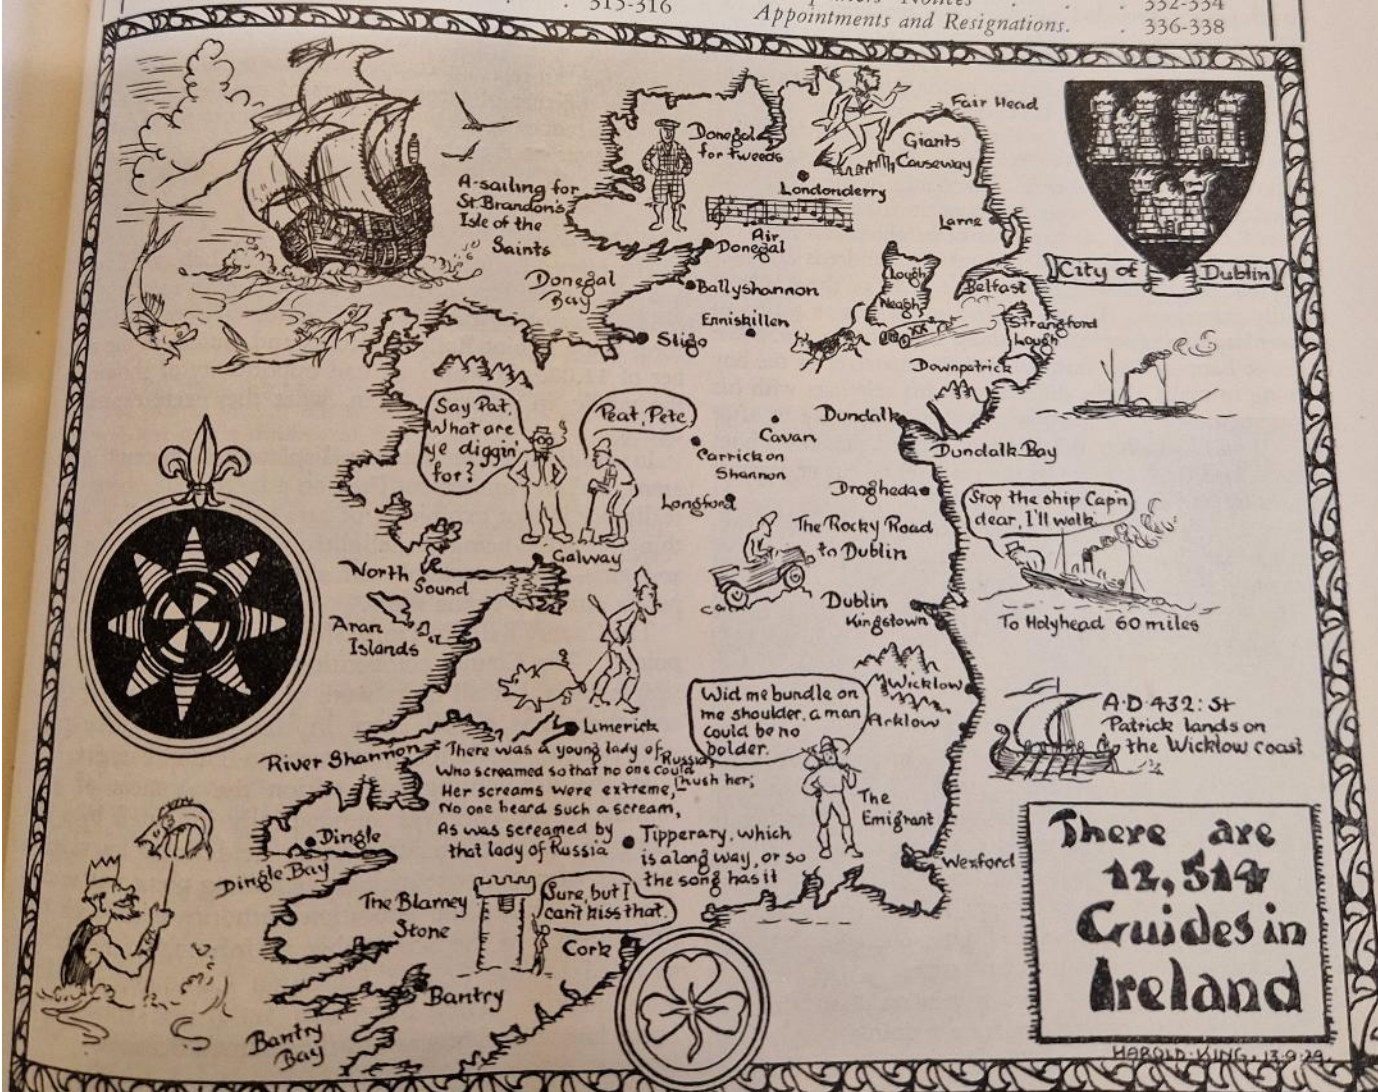 315-316
Notices
332-334
Appointments and Resignations.
336-338
Fair Head
Giants
Causeway
Donegal
for tweeds
Londonderry
A-sailing for
St Brandon's
Isle of the
Saints
Air
Donegal
Larne
City of Dublin
Donegal
Bay
Ballyshannon
Lough
Neagh
Belfast
Enniskillen
Sligo
XX
Strangford
Lough
Downpatrick
Say Pat,
What are
ye diggin'
for?
Peat, Pete
Cavan
Carrick on
Shannon
Dundalk
Dundalk Bay
Longford
Drogheda
Stop the ship Cap'n
dear, I'll walk.
The Rocky Road
to Dublin
Galway
North
Sound
Aran
Islands
Dublin
Kingstown
To Holyhead 60 miles
Wicklow
Arklow
A·D·432: St
Patrick lands on
the Wicklow coast
Wid me bundle on
me shoulder, a man
could be no
bolder.
The
Emigrant
Limerick
River Shannon
There was a young lady of Russia,
Who screamed so that no one could hush her;
Her screams were extreme,
No one heard such a scream,
As was screamed by
that lady of Russia
Tipperary, which
is a long way, or so
the song has it
Wexford
Dingle
Dingle Bay
The Blarney
Stone
Sure, but I
can't kiss that.
Cork
Bantry
Bantry
Bay
There are
12,514
Guides in
Ireland
HAROLD·KING. 13·9·29.